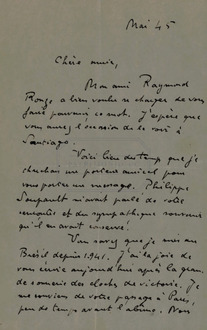 Mai 45
Chère amie,
Mon ami Raymond
a bien voulu se charger de vous
faire parvenir ce mot. J'espère que
vous aurez l'occasion de le voir à
Santiago.
Voici bien du temps que je
cherchais un porteur amical pour
vous porter un message. Philippe
Soupault m'avait parlé de votre
rencontre et du sympathique souvenir
qu'il en avait conservé.
Vous savez que je suis au
Brésil depuis 1941. J'ai la joie de
vous écrire aujourd'hui après la
des cloches de victoire. Je
me souviens de votre passage à Paris,
peu de temps avant l'abîme. Nous